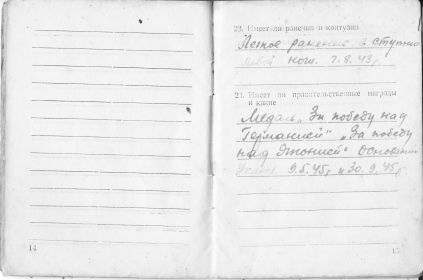 23. Имеет ли ранения и контузии
Легкое ранение в ступню
левой ноги. 7.8.43г.
24. Имеет ли правительственные награды
и какие
Медаль „За победу над
Германией" „За победу
над Японией" Основание
9.5.45г и 30.9.45г
14